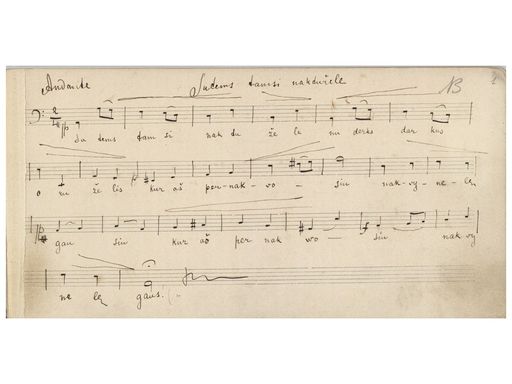 Andante Sutems tamsi naktužėle 13
Su tems tam si nak tu že le nu derks dar kus
o tu že lis kur aš per-nak-vo- siu nak-vy-ne-lę
gau siu kur aš per nak wo- siu nak vy
ne lę gaus.